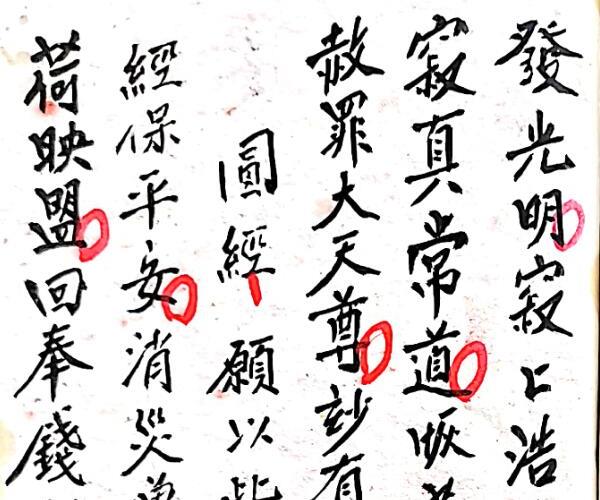 發光明寂〻浩
寂真常道恢
赦罪大天尊玅有
圓經願以此
經保平安消災
荷映盟回奉錢